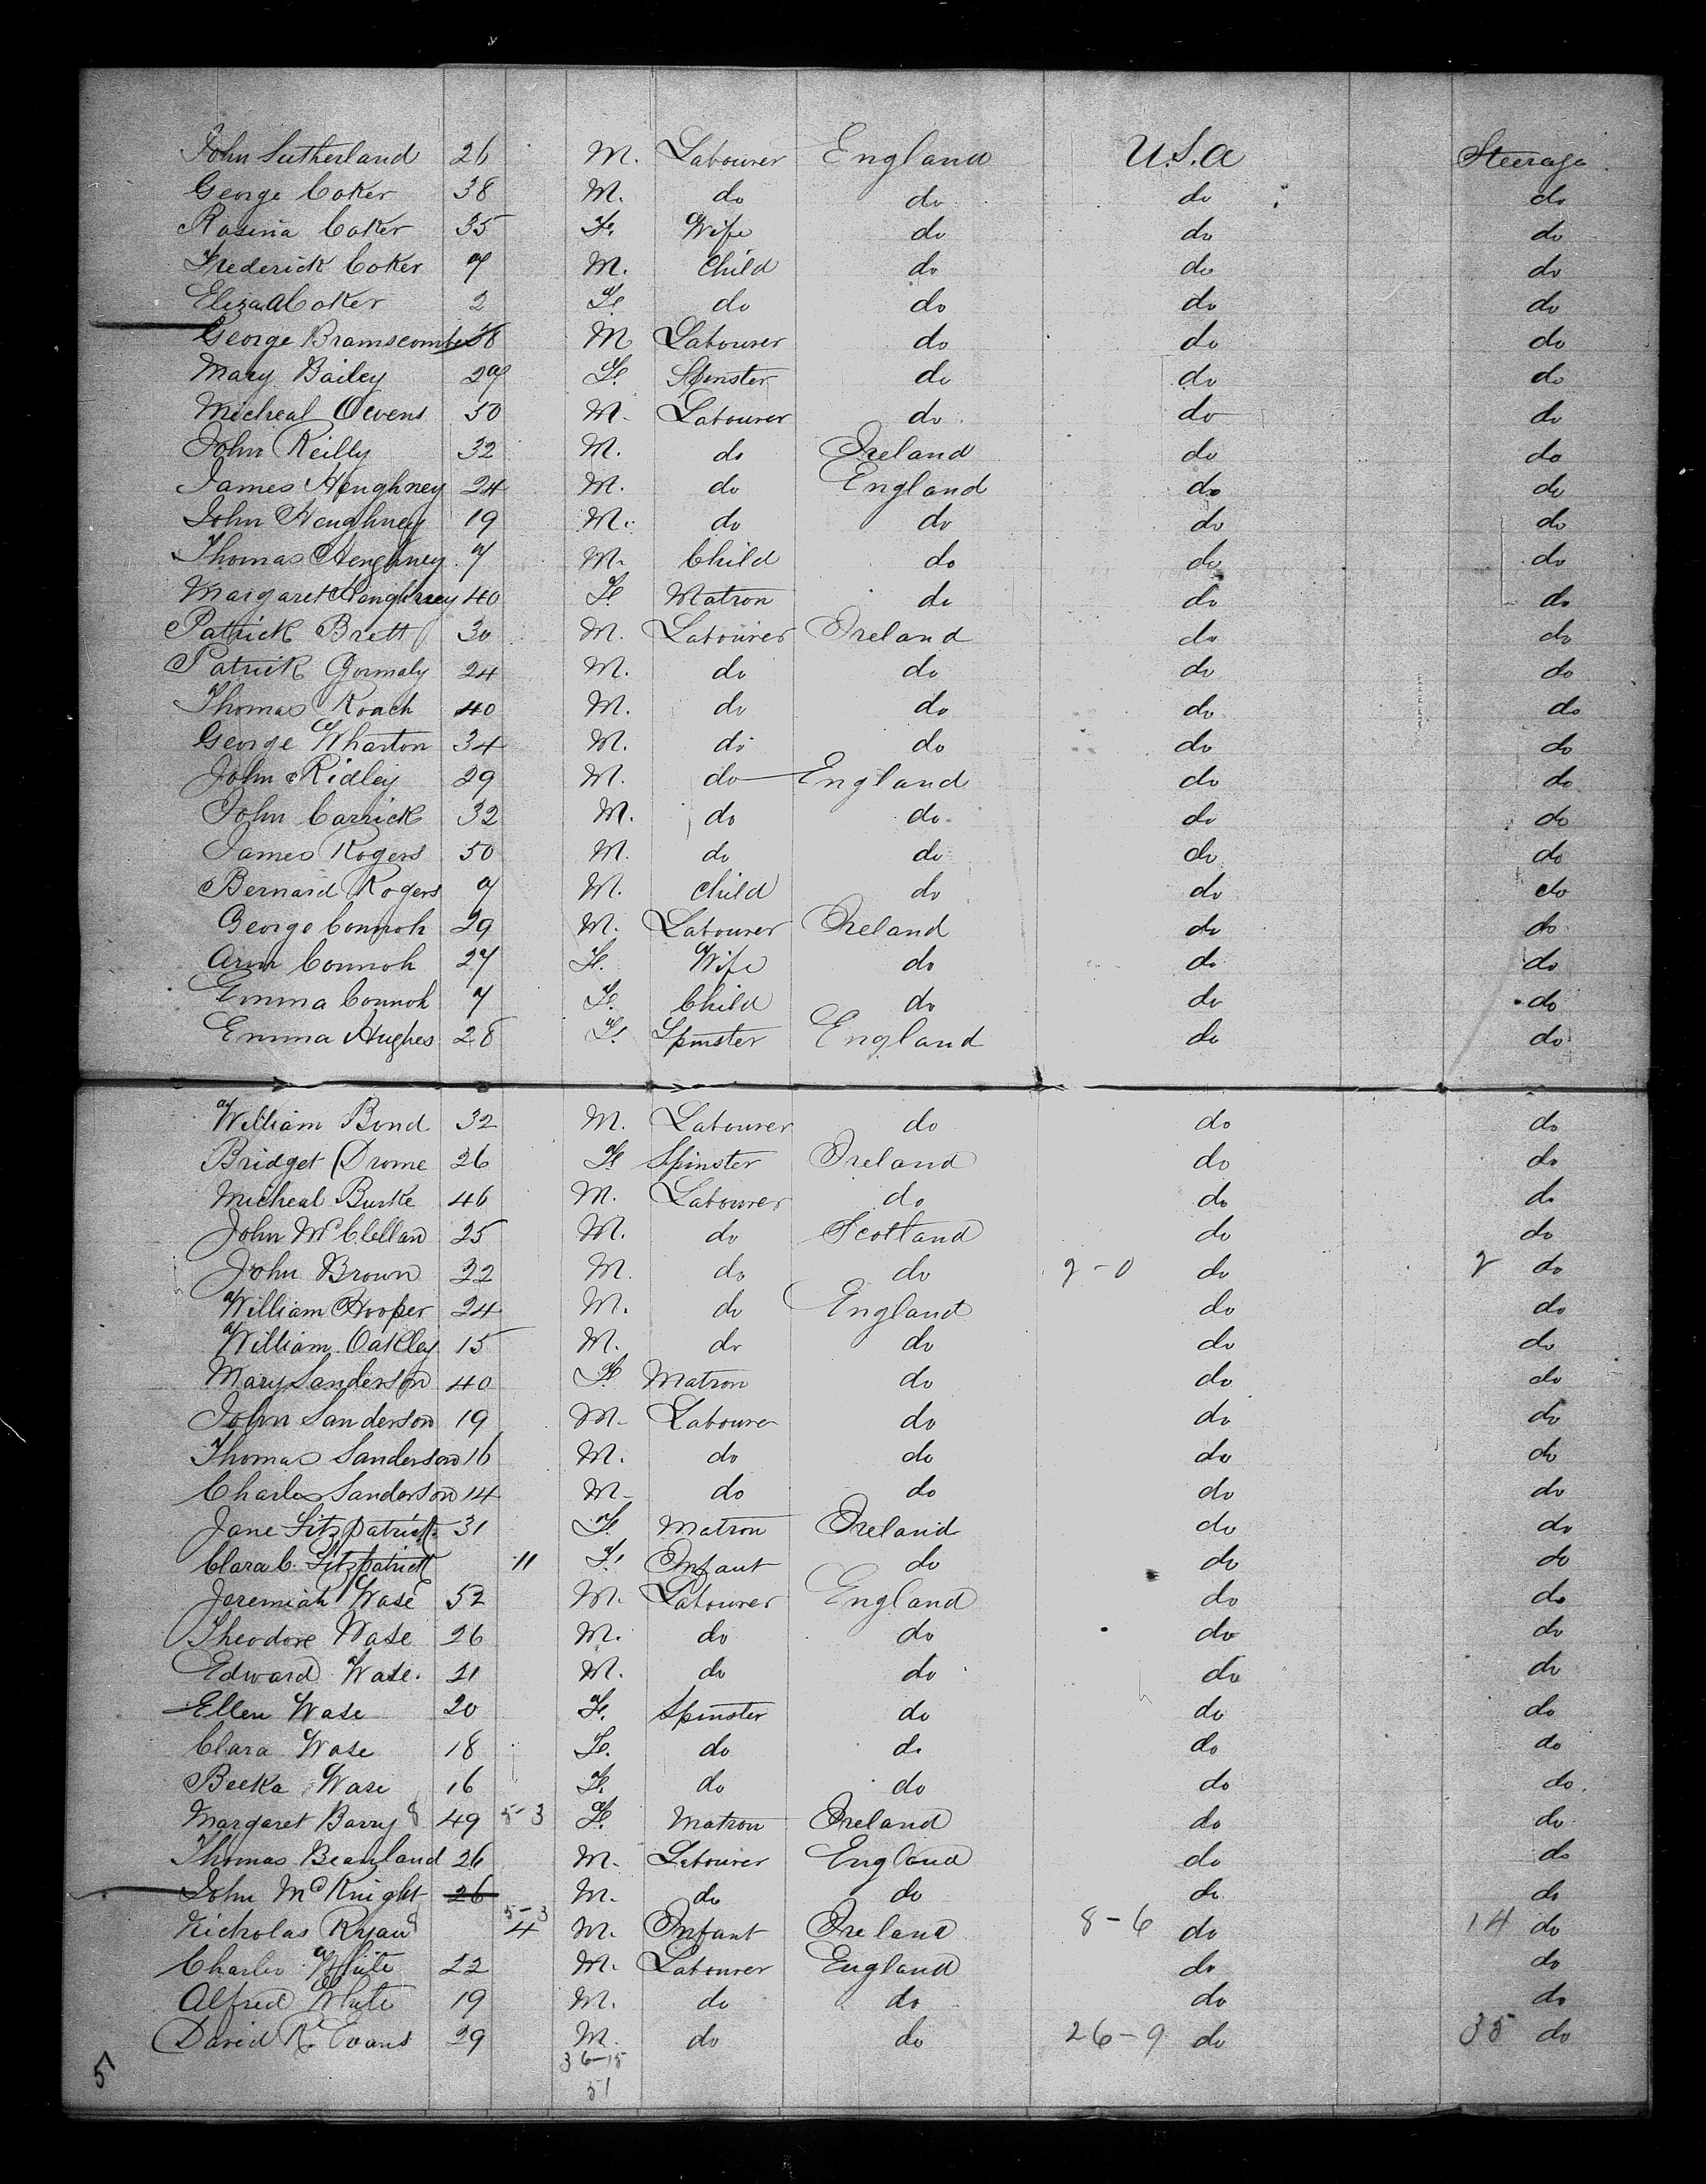 John Sutherland 26 M. Labourer England U.S.A Steerage
George Coker 38 M. do do do do
Rosina Coker 35 F. Wife do do do
Frederick Coker 7 M. Child do do do
Eliza A Coker 2 F. do do do do
George Bramscombe 38 M Labourer do do do
Mary Bailey 27 F. Spinster do do do
Micheal Owens 50 M. Labourer do do do
John Reilly 32 M. do Ireland do do
James Heughney 24 M. do England do do
John Heughney 19 M. do do do do
Thomas Heughney 7 M. Child do do do
Margaret Heughney 40 F. Matron do do do
Patrick Brett 30 M. Labourer Ireland do do
Patrick Gormaly 24 M. do do do do
Thomas Roach 40 M. do do do do
George Wharton 34 M. do do do do
John Ridley 29 M. do England do do
John Carrick 32 M. do do do do
James Rogers 50 M. do do do do
Bernard Rogers 7 M. Child do do do
George Connoh 29 M. Labourer Ireland do do
Ann Connoh 27 F. Wife do do do
Emma Connoh 7 F. Child do do do
Emma Hughes 28 F. Spinster England do do
William Bond 32 M. Labourer do do do
Bridget Drome 26 F. Spinster Ireland do do
Micheal Burke 46 M. Labourer do do do
John McClellan 25 M. do Scotland do do
John Brown 32 M. do do 2-0 do 2 do
William Hooper 24 M. do England do do
William Oakley 15 M. do do do do
Mary Sanderson 40 F. Matron do do do
John Sanderson 19 M. Labourer do do do
Thomas Sanderson 16 M. do do do do
Charles Sanderson 14 M. do do do do
Jane Fitzpatrick 31 F. Matron Ireland do do
Clara C. Fitzpatrick 11 F. Infant do do do
Jeremiah Wase 52 M. Labourer England do do
Theodore Wase 26 M. do do do do
Edward Wase. 21 M. do do do do
Ellen Wase 20 F. Spinster do do do
Clara Wase 18 F. do do do do
Beeka Wase 16 F. do do do do
Margaret Barry 49 5-3 F. Matron Ireland do do
Thomas Beanland 26 M. Labourer England do do
John McKnight 26 M. do do do do
5-3
Nicholas Ryan 4 M. Infant Ireland 8-6 do 14 do
Charles White 22 M. Labourer England do do
Alfred White 19 M. do do do do
David R. Evans 29 M. do do 26-9 do 35 do
36-15
51
5